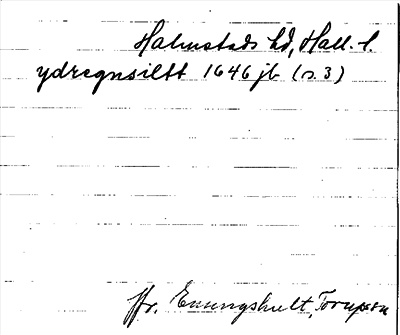 Halmstads hd, Hall. l.
ydregnsiltt 1646 jb (s. 3)
jfr. Enungshult, Torups sn